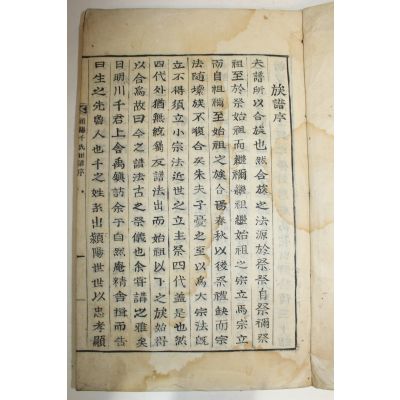 族譜序
夫譜所以合族也然合族之法源於祭祭自禰祭
祖至於祭始祖而繼禰繼祖繼始祖之宗立焉宗立
而自祖禰至始祖之族合焉春秋以後祭禮缺而宗
法隨壞族不復合矣朱夫子憂之至以爲大宗法旣
立不得須立小宗法近世之立主祭四代蓋是也然
四代外猶無統焉反譜法出而始祖以下之族始得
以合焉故曰今之譜法古之祭儀也余嘗講之雅矣
日明川千君上舍禹興訪余于自然庵精舍揖而告
曰生之先魯人也千之姓系出潁陽世世以忠孝顯
潁陽千氏世譜序